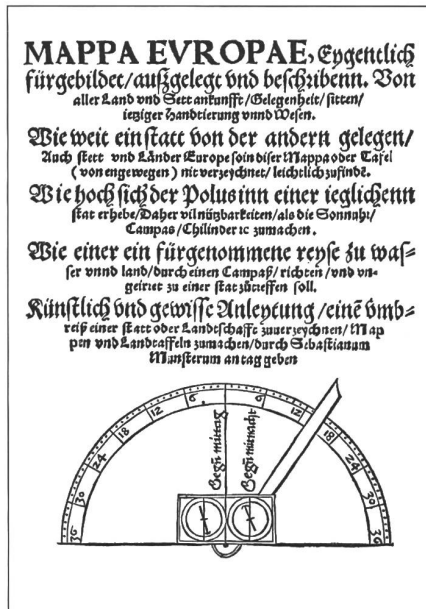 MAPPA EVROPAE, Eygentlich
fürgebildet/außgelegt vnd beschribenn. Von
aller Land vnd Stett ankunfft/Gelegenheit/sitten/
ietziger Handtierung vnnd Wesen.
Wie weit ein statt von der andern gelegen/
Auch stett vnd Länder Europe so in diser Mappa oder Tafel
(von engewegen) nit verzeychnet/leichtlich zufindē.
Wie hoch sich der Polus inn einer ieglichenn
stat erhebe/Daher vil nützbarkeiten/als die Sonnuhr/
Campas/Chilinder ꝛc zumachen.
Wie einer ein fürgenommene reyse zu was=
ser vnnd land/durch einen Campaß/richten/vnd vn=
geirret zu einer stat zůtreffen soll.
Künstlich vnd gewisse Anleytung/einē vmb=
reiß einer statt oder Landtschafft zuuerzeychnen/Map
pen vnd Landtaffeln zumachen/durch Sebastianum
Munsterum an tag geben
36 30 24 18 12 6 6 12 18 24 30 36
Gegē mittag
Gegē mitnacht